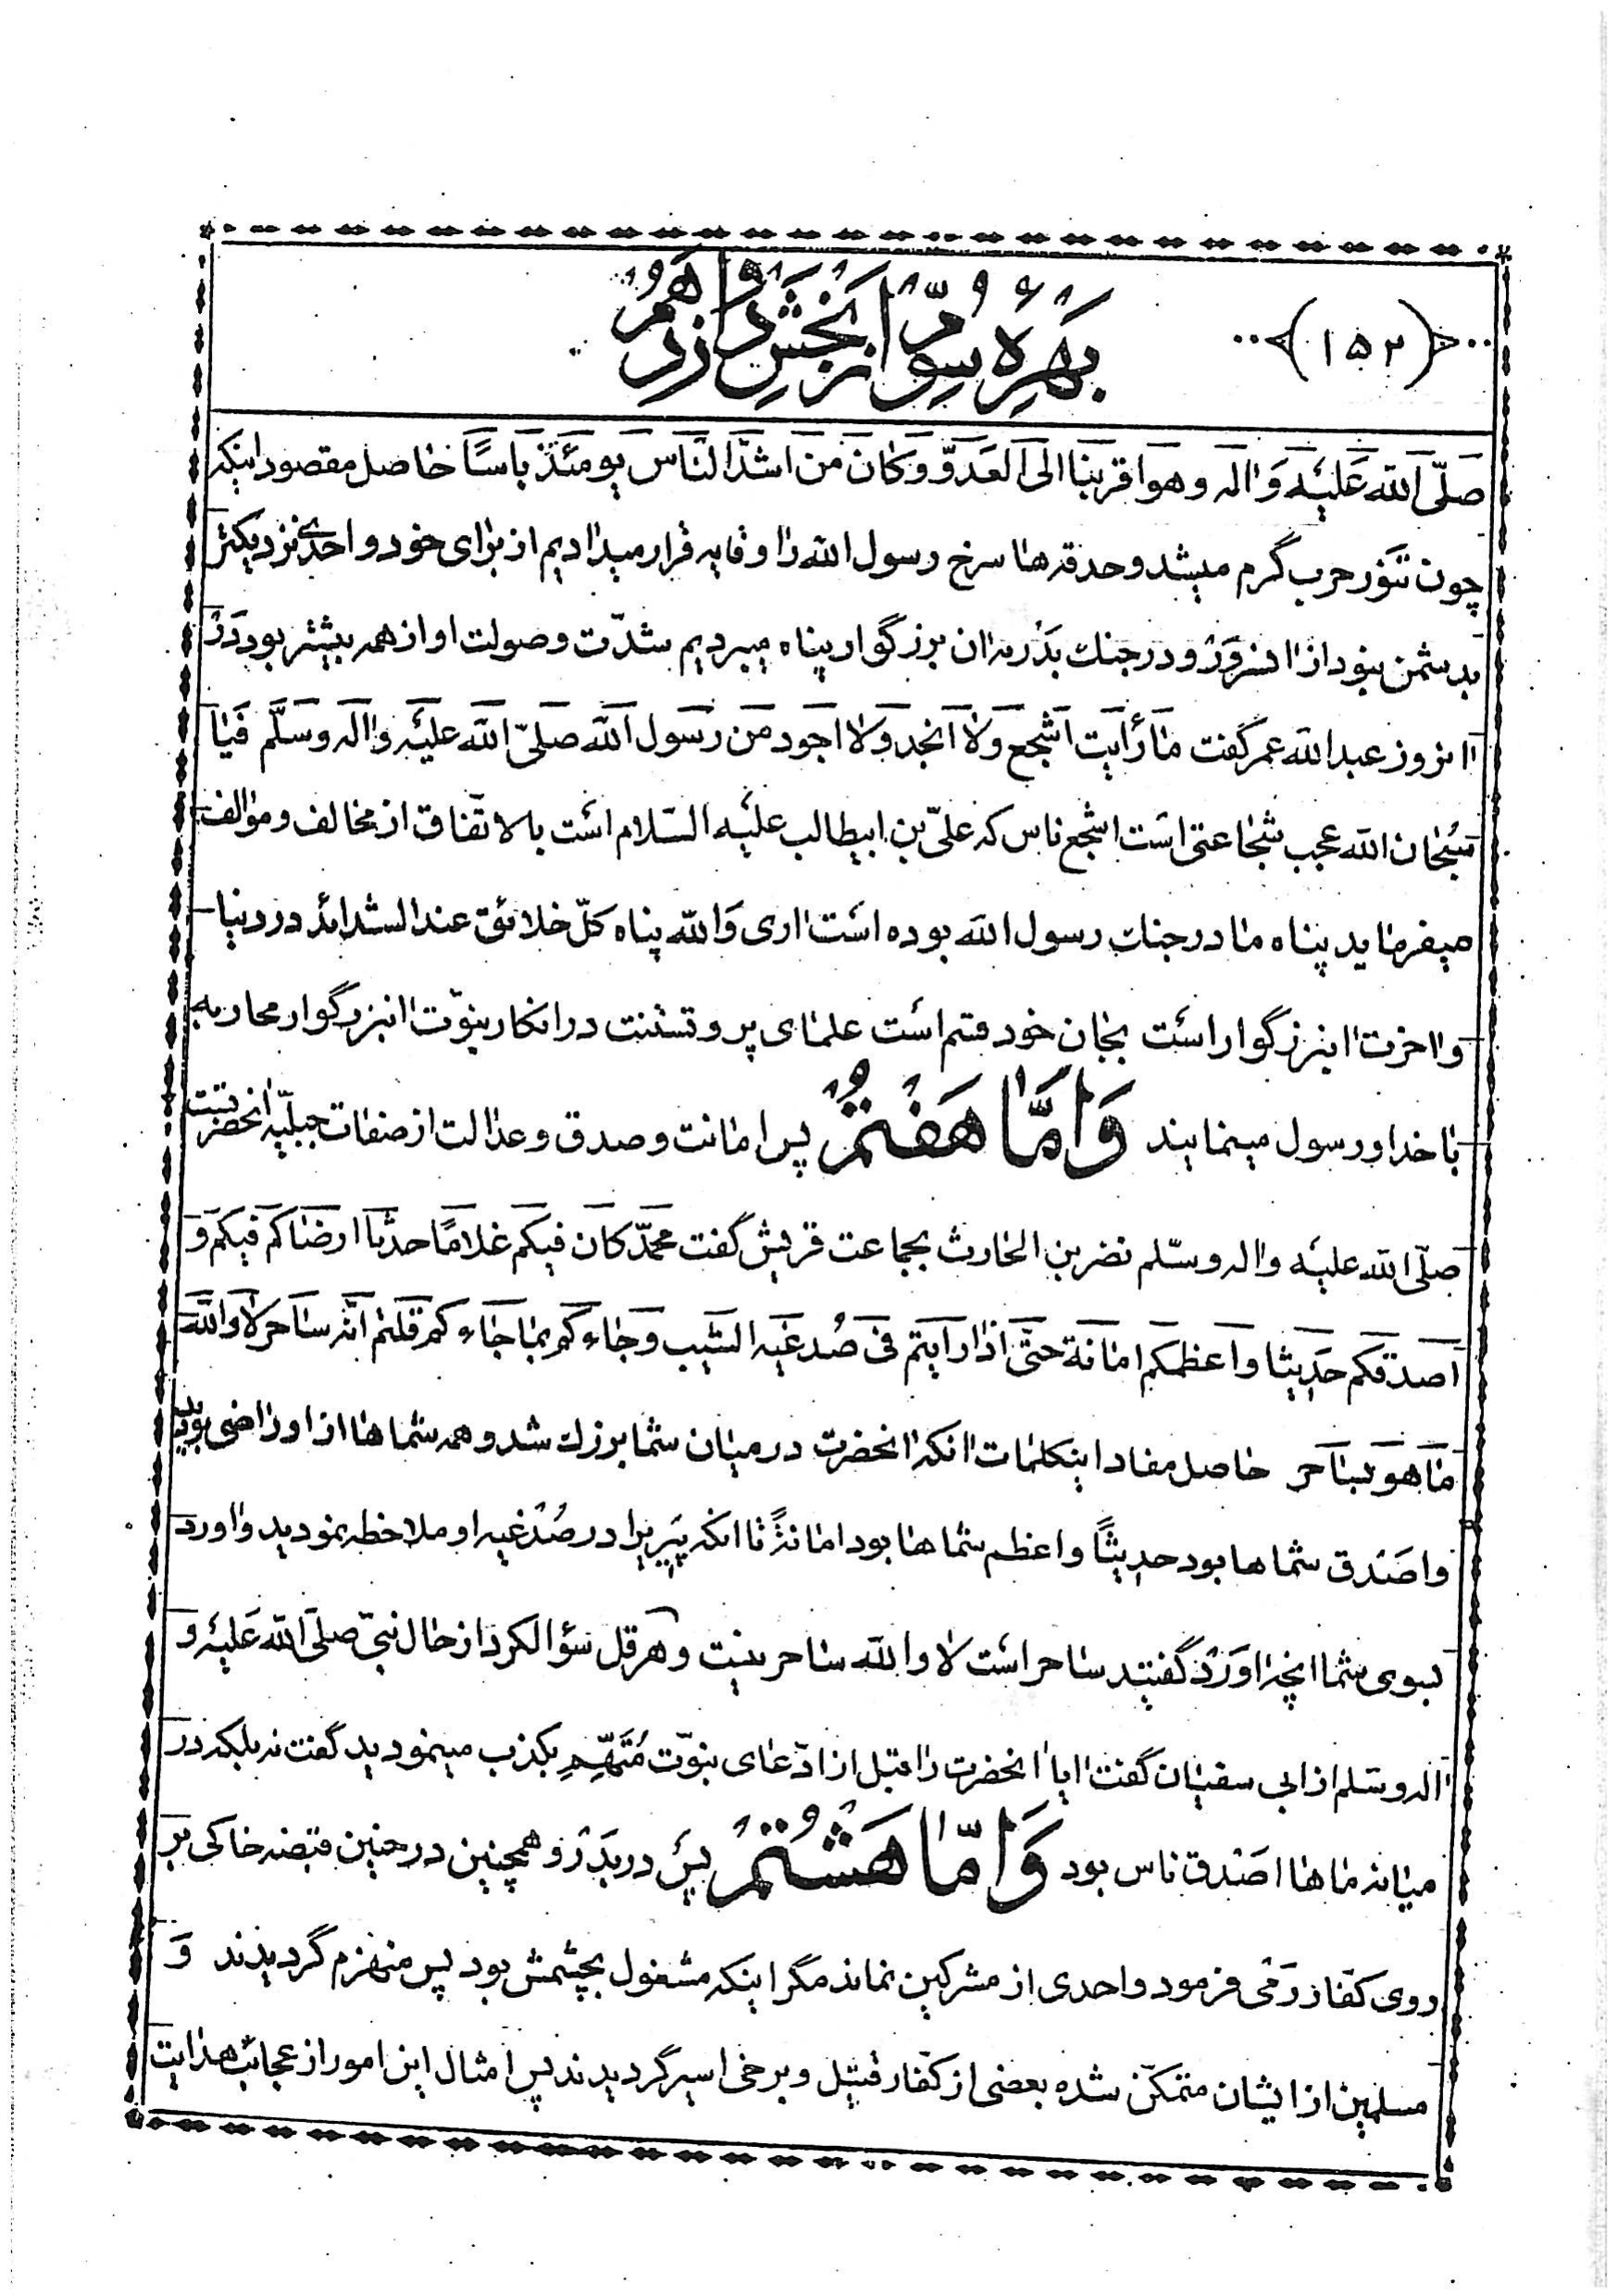 (۱۵۲)
بهره سوّم از بخش دوازدهم
صلّی الله علیه واله وهو اقربنا الی العدوّ وکان من اشدّ النّاس یومئذ باسًا حاصل مقصود اینکه
چون تنّور حرب گرم میشد وحدقه ها سرخ رسول الله را وقایه قرار میدادیم از برای خود واحدی نزدیکتر
بدشمن نبود از انسرور ودر جنك بدر بان بزرگوار پناه میبردیم شدّت وصولت او از همه بیشتر بود در
انروز عبدالله عمر گفت ما رأیت اشجع ولا انجد ولا اجود من رسول الله صلّی الله علیه واله وسلّم فیا
سبحان الله عجب شجاعتی است اشجع ناس که علیّ بن ابیطالب علیه السّلام است بالاتّفاق از مخالف ومؤالف
میفرماید پناه ما در جنك رسول الله بوده است اری والله پناه کلّ خلائق عند الشدائد در دنیا
واخرت اینبزرگوار است بجان خود قسم است علمای پروتستنت در انکار نبوّت انبزرگوار محاربه
با خدا ورسول مینمایند وامّا هفتم پس امانت وصدق وعدالت از صفات جبلیّه انحضرتست
صلّی الله علیه واله وسلّم نضر بن الحارث بجماعت قریش گفت محمّد کان فیکم غلامًا حدثا ارضاکم فیکم و
اصدقکم حدیثا واعظمکم امانة حتّی اذا رایتم فی صدغیه الشیب وجاءکم بما جاءکم قلتم انّه ساحر لا والله
ما هو بساحر حاصل مفاد اینکلمات انکه انحضرت در میان شما بزرك شد وهمه شماها از او راضی بودید
واصدق شماها بود حدیثًا واعظم شماها بود امانةً تا انکه پیریرا در صدغیه او ملاحظه نمودید واورد
بسوی شما انچه اورد گفتید ساحر است لا والله ساحر نیست وهرقل سؤالکرد از حال نبیّ صلّی الله علیه و
اله وسلم از ابی سفیان گفت ایا انحضرت را قبل از ادّعای نبوّت متّهم بکذب مینمودید گفت نه بلکه در
میانه ماها اصدق ناس بود وامّا هشتم پس در بدر وهمچنین در حنین قبضه خاکی بر
روی کفّار رمی فرمود واحدی از مشرکین نماند مگر اینکه مشغول بچشمش بود پس منهزم گردیدند و
مسلمین از ایشان متمکّن شده بعضی از کفّار قتیل وبرخی اسیر گردیدند پس امثال این امور از عجائب هدایت